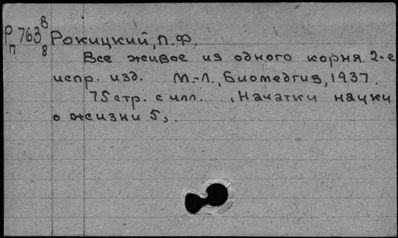 Р 763 8 Рокицкий, П.Ф.
П 8
Все живое из одного корня. 2-е
испр. изд. М.-Л., Биомедгиз, 1937.
75 стр. с илл. „Начатки науки
о жизни 5„.